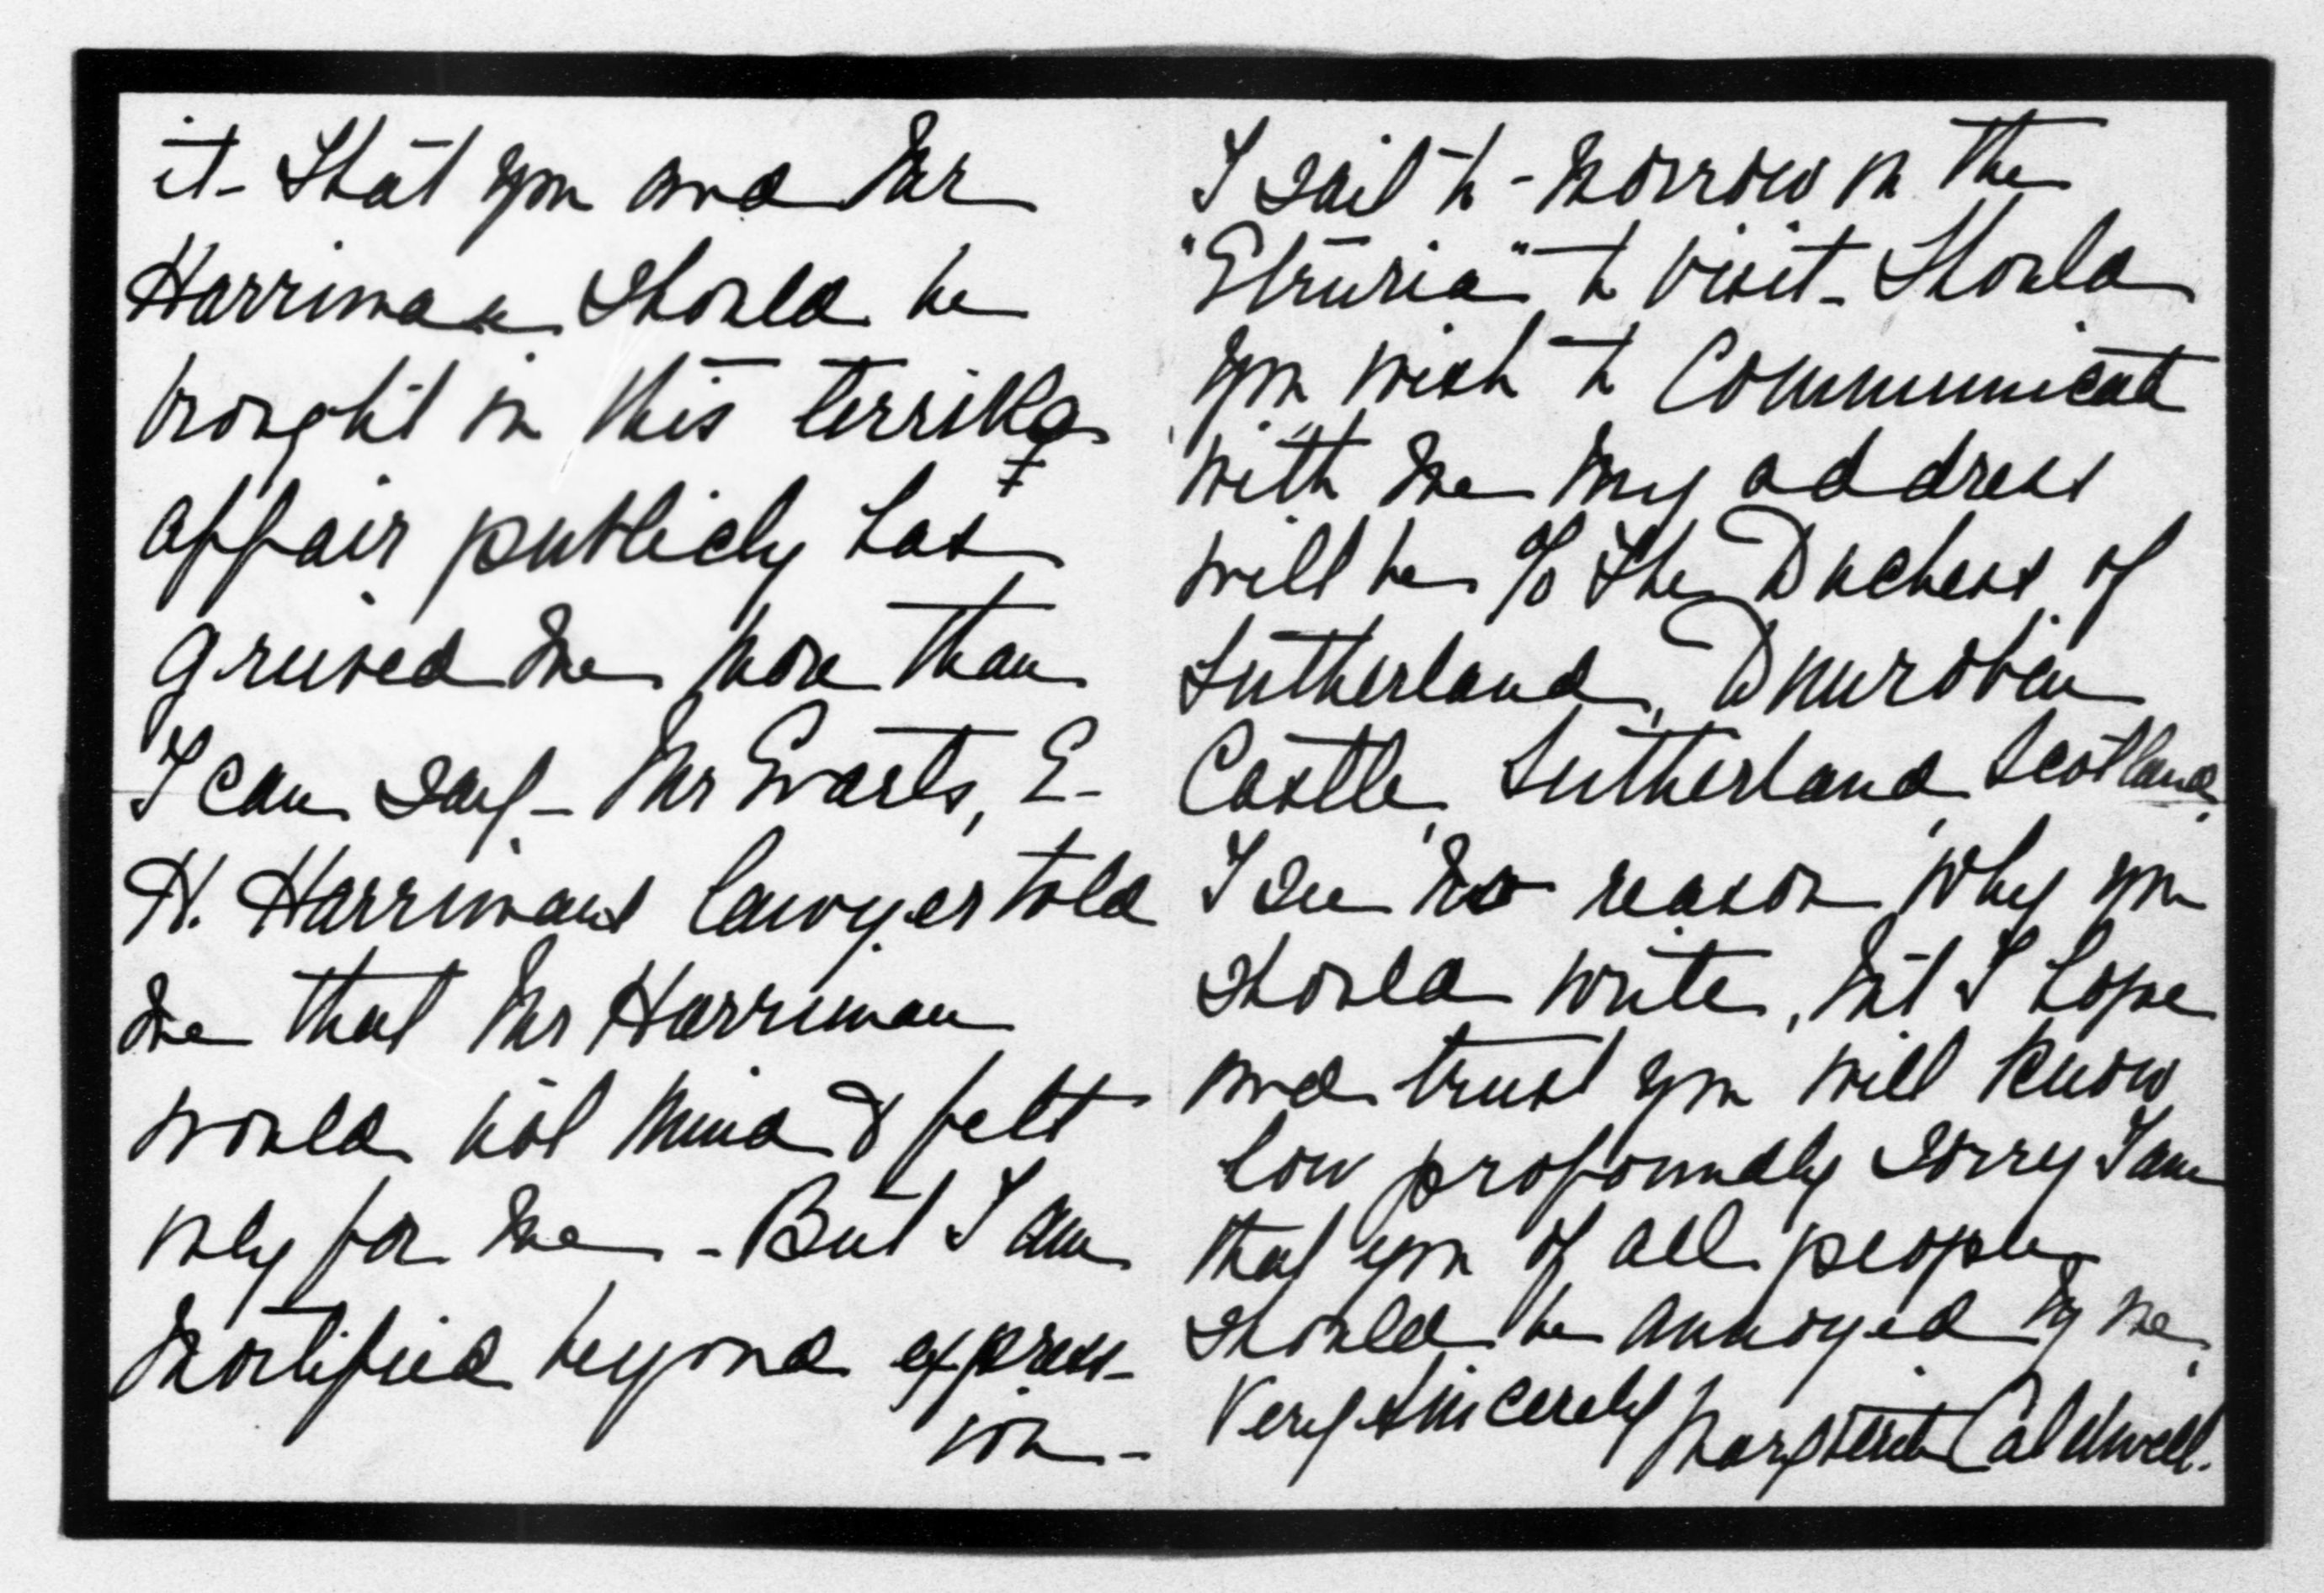 it - That you and Mr
Harriman should be
brought in this terrible
affair publicly has
grieved me more than
I can say - Mr Evarts, E.
H. Harrimans lawyer told
me that Mr Harriman
would not mind & felt
only for me - But I am
mortified beyond express-
ion -
I sail to-morrow on the
"Etruria" to visit - Should
you wish to communicate
with me my address
will be c/o The Duchess of
Sutherland, Dunrobin
Castle, Sutherland, Scotland.
I see no reason why you
should write, but I hope
and trust you will know
how profoundly sorry I am
that you of all people
should be annoyed by me.
Very sincerely Marguerite Caldwell.